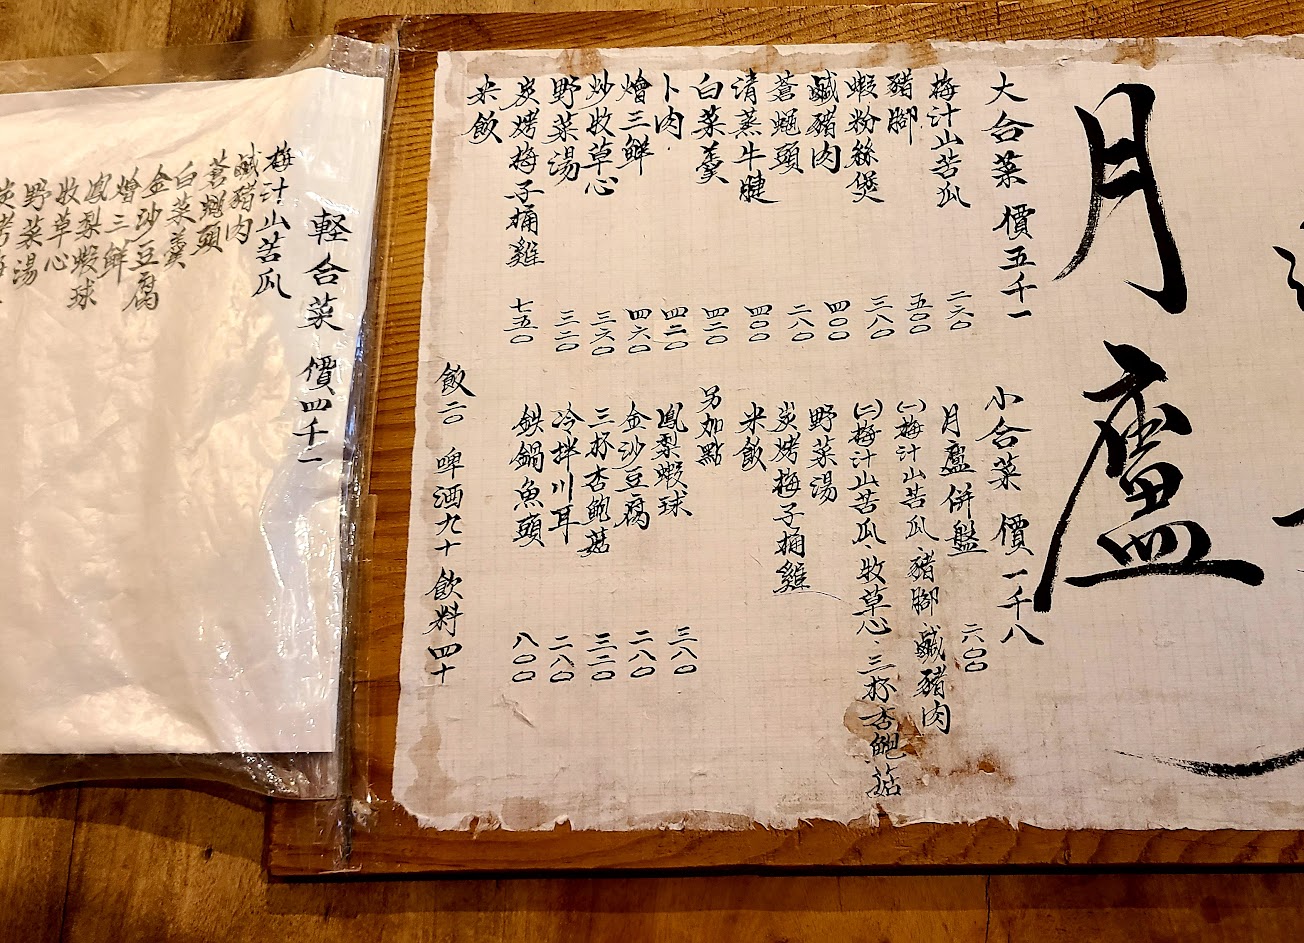 月廬
大合菜 價五千一
梅汁山苦瓜 二六〇
豬腳 五〇〇
蝦粉絲煲 三八〇
鹹豬肉 四〇〇
蒼蠅頭 二八〇
清蒸牛腱 四〇〇
白菜羹 四二〇
卜肉 四二〇
燴三鮮 四六〇
炒牧草心 三六〇
野菜湯 三二〇
炭烤梅子桶雞 七五〇
米飯
小合菜 價一千八
月廬併盤 六〇〇
(一)梅汁山苦瓜、豬腳 鹹豬肉
(二)梅汁山苦瓜、牧草心、三杯杏鮑菇
野菜湯
炭烤梅子桶雞
米飯
另加點
鳳梨蝦球 三八〇
金沙豆腐 二八〇
三杯杏鮑菇 三二〇
冷拌川耳 二八〇
鉄鍋魚頭 八〇〇
飯二〇 啤酒九十 飲料四十
軽合菜 價四千一
梅汁山苦瓜
鹹豬肉
蒼蠅頭
白菜羹
金沙豆腐
燴三鮮
鳳梨蝦球
牧草心
野菜湯
炭烤梅